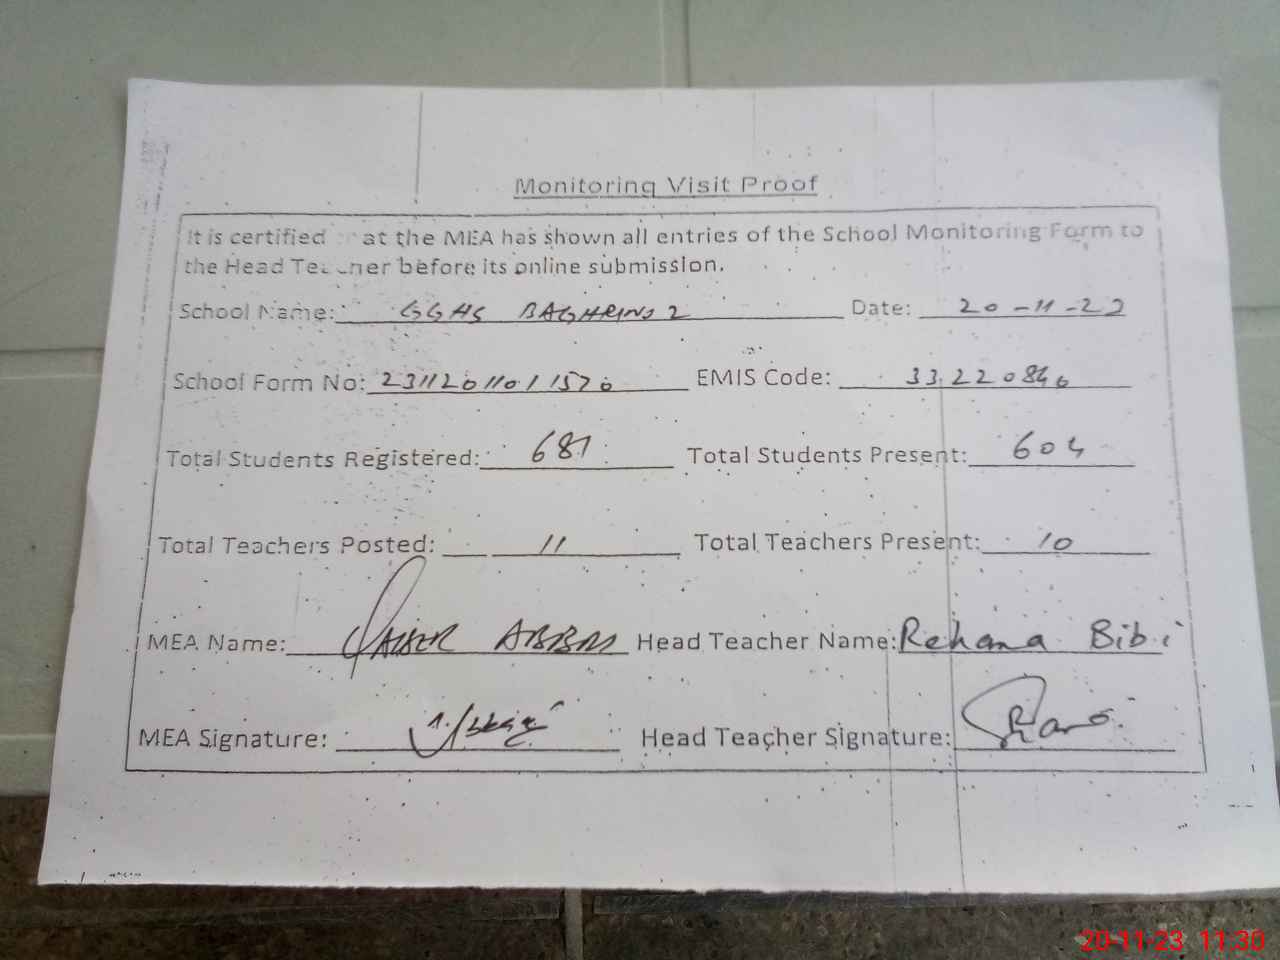 Monitoring Visit Proof
It is certified at the MEA has shown all entries of the School Monitoring Form to
the Head Teacher before its online submission.
School Name: GGHS Date: 20-11-22
School Form No: 23112011011570 EMIS Code: 33220846
Total Students Registered: 681 Total Students Present: 604
Total Teachers Posted: 11 Total Teachers Present: 10
MEA Name: QAISER ABBAS Head Teacher Name: Rehana Bibi
MEA Signature: Head Teacher Signature:
20-11-23 11:30